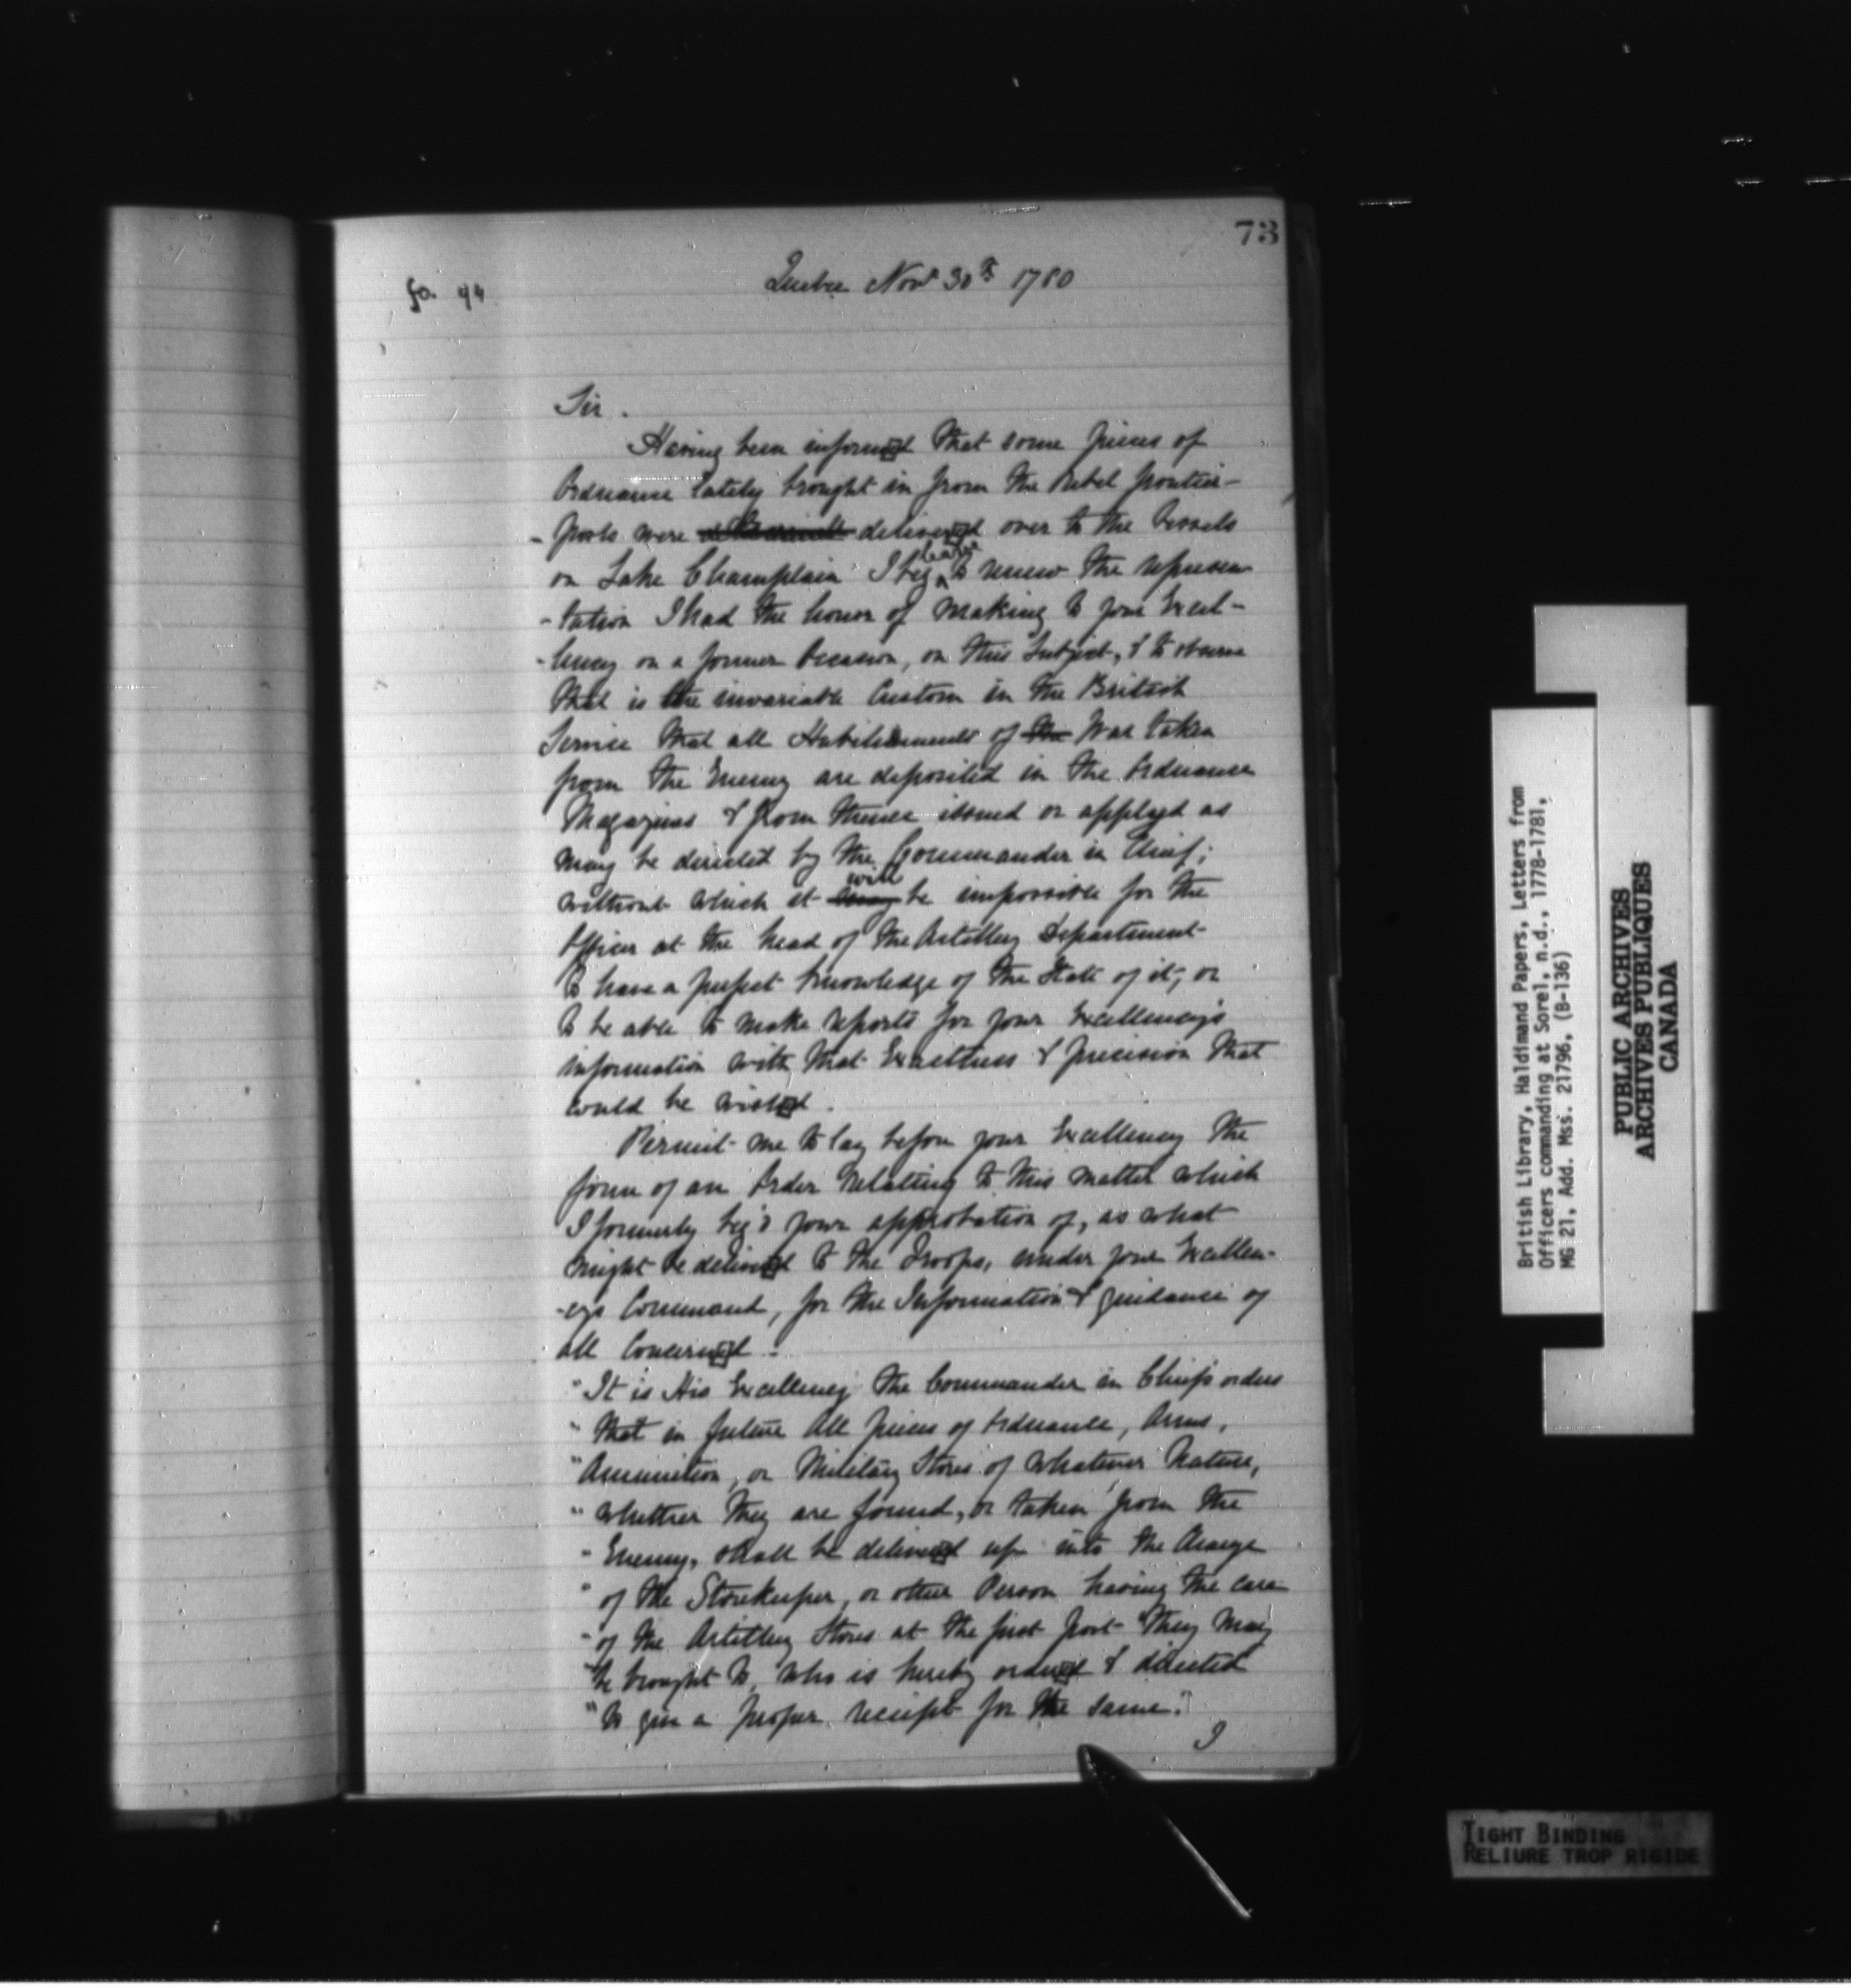 73
fo. 94
Quebec Novr 30th 1780
Sir.
Having been inform'd that some pieces of
Ordnance lately brought in from the Rebel frontier-
-posts were deliver'd over to the Vessels
on Lake Champlain I beg leave to renew the represen
-tation I had the honor of making to your Excel-
-lency on a former Occasion, on this Subject, & to observe
that is the invariable Custom in the British
Service that all Habiliaments of the War taken
from the Enemy are deposited in the Ordnance
Magazines & from thence issued or applyd as
may be directed by the Commander in Chief;
without which it may will be impossible for the
Officer at the head of the Artillery Department
to have a perfect knowledge of the State of it, or
to be able to make reports for your Excellency's
information with that Exactness & precision that
could be wish'd.
Permit me to lay before your Excellency the
form of an Order relating to this matter which
I formerly beg'd your approbation of, as what
might be deliver'd to the Troops, under your Excellen-
-cys Command, for the Information & guidance of
all Concern'd -
"It is His Excellency the Commander in Chief's orders
" that in future All pieces of Ordnance, Arms,
"Ammunition, or Military Stores of whatever Nature,
" whether they are found, or taken from the
" Enemy, shall be deliver'd up into the Charge
" of the Storekeeper, or other Person having the care
" of the Artillery Stores at the first post they may
"be brought to, who is hereby order'd & directed
"to give a proper receipt for the same."
I
British Library, Haldimand Papers, Letters from
Officers commanding at Sorel, n.d., 1778-1781,
MG 21, Add. Mss. 21796, (B-136)
PUBLIC ARCHIVES
ARCHIVES PUBLIQUES
CANADA
TIGHT BINDING
RELIURE TROP RIGIDE